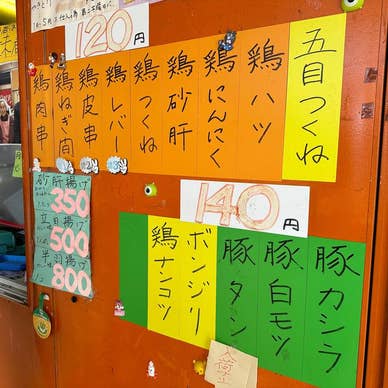 120円
五目つくね
鶏ハツ
鶏にんにく
鶏砂肝
鶏つくね
鶏レバー
鶏皮串
鶏ねぎ間
鶏肉串
砂肝揚げ
350
500
半羽揚げ
800
140円
豚カシラ
豚白モツ
豚タン
ボンジリ
鶏ナンコツ